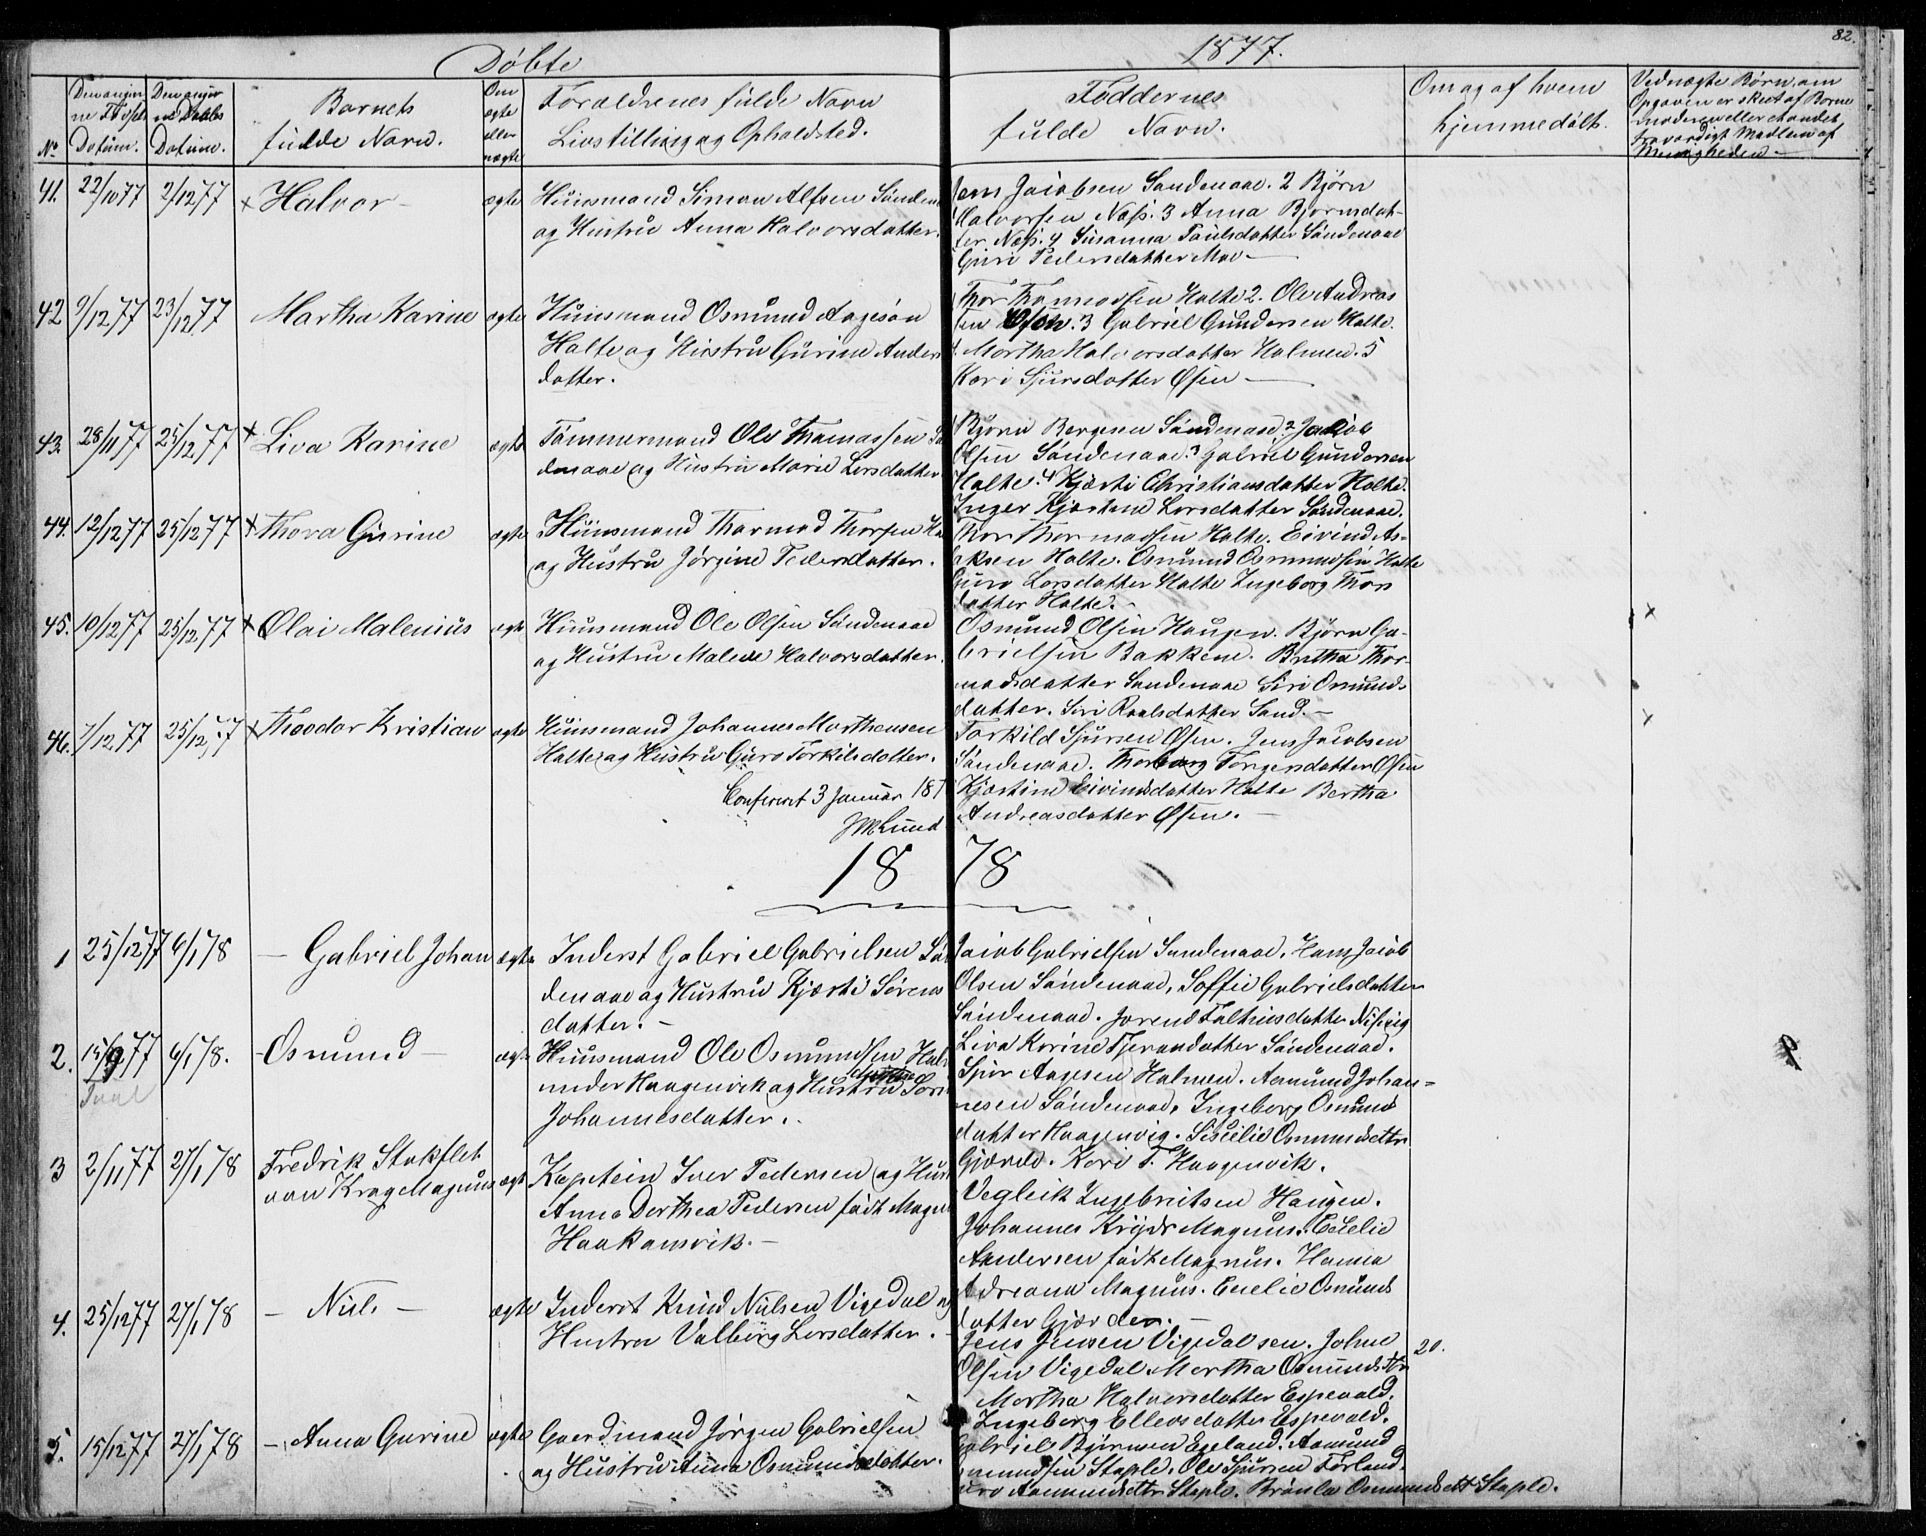 Døbte
1877.
82.
No
Den angivne Fødsels Datum.
Den angivne Daabs Datum.
Barnets
fulde Navn.
Om ægte eller uægte
Forældrenes fulde Navn
Livsstilling og Opholdsted.
Faddernes
fulde Navn.
Om og af hvem
hjemmedøbt.
Ved uægte Børn, om
Opgaven er skeet af Barne
moderen eller et andet
troværdigt Medlem af
Menigheden
41. 22/10 77 2/12 77 x Halvor - ægte
Huusmand Simon Alfsen Sanden
og Hustru Anna Halvorsdatter.
Jens Jacobsen Sandenaae. 2 Bjørn
Halvorsen Næss. 3 Anna Bjørnsdat-
ter Næss. 4 Susanna Paulsdatter Sandenaae
Guri Pedersdatter Moe -
42 9/12 77 23/12 77 Martha Karine ægte
Huusmand Osmund Aagesøn
Halte og Hustru Gurine Anders
datter.
Thor Thormodsen Halte 2. Ole Andreas
sen Øsen. 3 Gabriel Gundersen Halte.
4. Martha Halvorsdatter Holmen. 5
Kari Sjursdatter Øsen -
43. 28/11 77 25/12 77 x Liva Karine ægte
Tømmermand Ole Thomassen Sa
denaae og Hustru Marie Larsdatter
Bjørn Bergesen Sandenaae, 2 Jakob
Olsen Sandenaae. 3 Gabriel Gundersen
Halte. 4 Kjærsti Christiansdatter Halte.
Inger Kjerstine Larsdatter Sandenaae.
44. 12/12 77 25/12 77 x Thora Gurine ægte
Huusmand Thormod Thorsen Ha
og Hustru Jørgine Pedersdatter.
Thor Thormodsen Halte. Eivind As-
laksen Halte. Osmund Osmundsen Halte
Guro Larsdatter Halte Ingeborg Thors
datter Halte.
45. 10/12 77 25/12 77 x Olai Malenius ægte
Huusmand Ole Olsen Sandenaae
og Hustru Malene Halvorsdatter.
Osmund Olsen Haugen. Bjørn Ga-
brielsen Bakkene. Britha Thor-
modsdatter Sandenaae Siri Osmunds
datter. Siri Roalsdatter Sand. -
x
46. 7/12 77 25/12 77 x Theodor Kristian ægte
Huusmand Johannes Marthensen
Halte og Hustru Guro Torkilsdatter.
Torkild Sjursen Øsen. Jens Jacobsen
Sandenaae. Thorborg Torgersdatter Øsen
Kjerstine Eivindsdatter Halte Bertha
Andreasdatter Øsen. -
x
Confereret 3 Januar 187
JM Lund
1878
1 25/12 77 6/1 78 - Gabriel Johan ægte
Inderst Gabriel Gabrielsen San
denaae og Hustru Kjærsti Sørens
datter. -
Jacob Gabrielsen Sandenaae. Hans Jacob
Olsen Sandenaae, Soffie Gabrielsdatter
Sandenaae. Jorend Falkiusdatter
Liva Karine Tjerandatter Sandenaae.
2. 15/9 77 6/1 78. - Osmund - ægte
Huusmand Ole Osmundsen Hals
under Haagenvik og Hustru
Johannesdatter.
Sjur Aagesen Holmen. Asmund Johan-
nesen Sandenaae, Ingeborg Osmunds
datter Haagenvig. Siselie Osmundsdttr
Gjærde. Kari T. Haagenvik.
3 2/11 77 27/1 78 Fredrik Stokflet
van Krag Magnus ægte
Kaptein Iver Pedersen og Hust
Anna Dorthea Pedersen født Magn
Haakonsvik. -
Vegleik Ingebritsen Haugen.
Johannes Krijdr Magnus. Cecelie
Andersen født Magnus. Hanna
Adreana Magnus. Cecelie Osmunds
datter Gjærden. -
4. 25/12 77 27/1 78 - Nils - ægte
Inderst Knud Nielsen Vigedal og
Hustru Valborg Larsdatter. -
Jens Jensen Vigedal sen. Johne
Olsen Vigedal Martha Osmundsdttr
Martha Halvorsdatter Espevold.
Ingeborg Ellevsdatter Espevold.
20.
5. 15/12 77 27/1 78 - Anna Gurine ægte
Gaardmand Jørgen Gabrielsen
og Hustru Anna Osmundsdatter.
Gabriel Bjørnsen Egeland. Asmund
Osmundsen Staple. Ole Sjursen Førland.
Guro Asmundsdttr Staple. Brønla Osmundsdttr Staple.